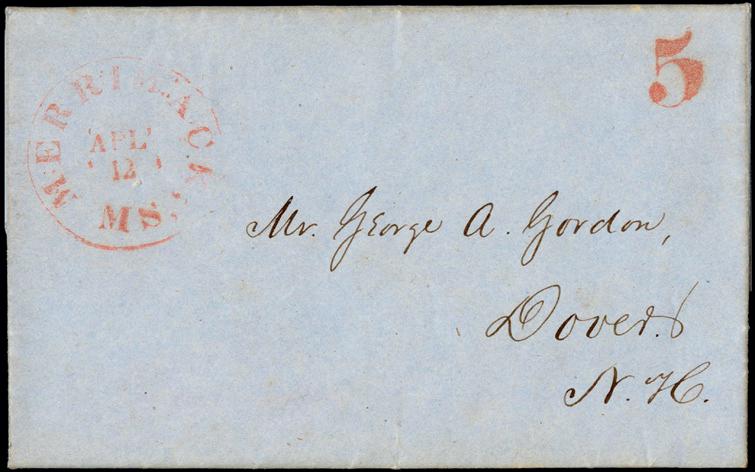 MERRIMACK
APL
12
MS
5
Mr. George A. Gordon,
Dover.
N. H.